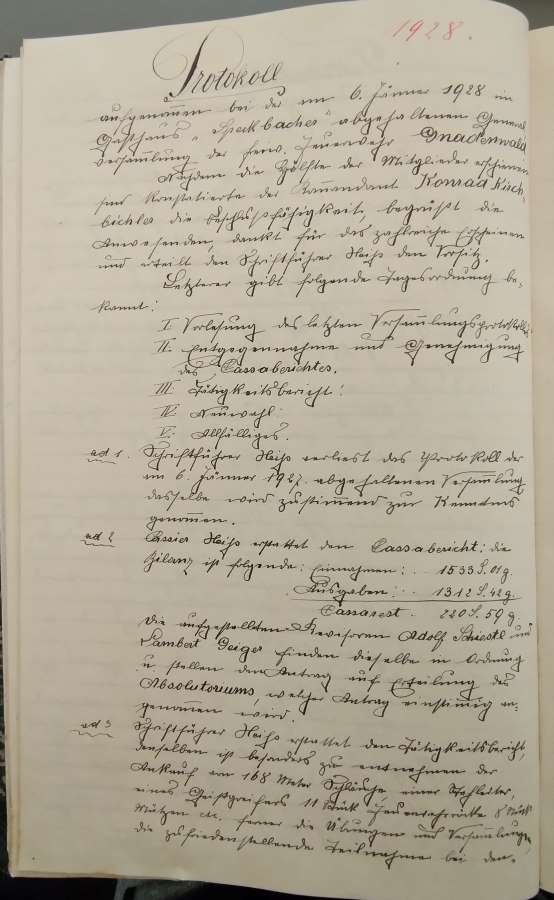 1928.
Protokoll
aufgenommen bei der am 6. Jänner 1928 im
Gasthaus "Speckbacher" abgehaltenen General
versammlung der freiw. Feuerwehr Gnadenwald.
Nachdem die Hälfte der Mitglieder erschienen
sind konstatierte der Kommandant Konrad Kirch-
bichler die Beschlußfähigkeit, begrüßt die
Anwesenden, dankt für das zahlreiche Erscheinen
und erteilt dem Schriftführer den Vorsitz.
Letzterer gibt folgende Tagesordnung be-
kannt:
I. Vorlesung des letzten Versammlungsprotokolles
II. Entgegennahme und Genehmigung
des Cassaberichtes.
III. Tätigkeitsbericht!
IV. Neuwahl.
V. Allfälliges.
ad 1. Schriftführer verliest das Protokoll der
am 6. Jänner 1927. abgehaltenen Versammlung,
dasselbe wird zustimmend zur Kenntnis
genommen.
ad 2 Cassier erstattet den Cassabericht; die
Bilanz ist folgende: Einnahmen: . . 1533 S. 01 g
Ausgaben: . . 1312 S. 42 g
Cassarest . 220 S. 59 g
Die aufgestellten Revisoren Adolf Schiestl und
Lambert Geiger finden dieselbe in Ordnung
u. stellen den Antrag auf Erteilung des
Absolutoriums, welcher Antrag einstimmig an-
genommen wird.
ad 3 Schriftführer erstattet den Tätigkeitsbericht,
demselben ist besonders zu entnehmen der
Ankauf von 168 Meter Schläuche einer Stehleiter,
eines 11 Stück Feuerwehrröcke 8 Stück
Mützen etc. ferner die Übungen und Versammlungen,
die zufriedenstellende Teilnahme bei den-